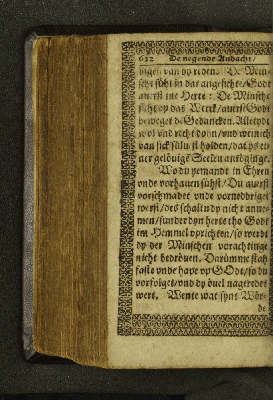 622 De negende Andacht/
van dy reden. De Min-
sche süht in dat angesichte/ Godt
auerst int Herte: De Minsche
süht op das Werck/ auerst Godt
beweget de Gedancken. Alletydt
wol vnd recht doen/ vnd weinich
van sick sülu st holden/ dat ys ei-
ner gelöuige Seelen antöginge.
Wo du yemandt in Ehren
vnde vorhauen sühst/ Du auerst
vorschmadet vnde vorneddriget
werst/ des schaltu dy nicht anne-
men/ sunder dyn herte tho Godt
im Hemmel vprichten/ so werdt
dy der Minschen vorachtinge
nicht bedröuen. Darümme stah
faste vnde hape vp GOdt/ so du
voruolget/ vnd dy öuel nageredet
wert. Wente wat synt Wör-
de